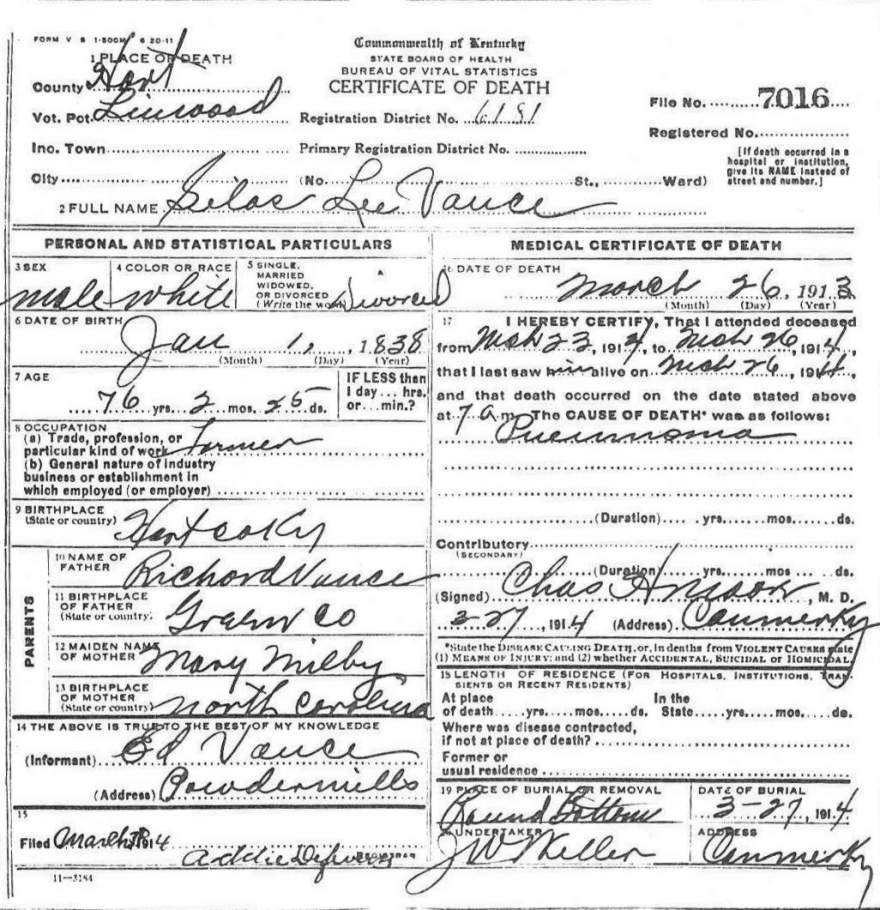 FORM V S 1-500M 6 20-11
Commonwealth of Kentucky
STATE BOARD OF HEALTH
BUREAU OF VITAL STATISTICS
CERTIFICATE OF DEATH
1 PLACE OF DEATH
County Hart
Vot. Pct. Linwood
Registration District No. 6191
File No. 7016
Inc. Town
Primary Registration District No.
Registered No.
City (No. St., Ward)
[If death occurred in a hospital or institution, give its NAME instead of street and number.]
2 FULL NAME Silas Lee Vance
PERSONAL AND STATISTICAL PARTICULARS
3 SEX
male
4 COLOR OR RACE
White
5 SINGLE, MARRIED WIDOWED, OR DIVORCED
(Write the word) Divorced
6 DATE OF BIRTH
Jan 1, 1838
(Month) (Day) (Year)
7 AGE
76 yrs. 2 mos. 25 ds.
IF LESS than
1 day... hrs.
or... min.?
8 OCCUPATION
(a) Trade, profession, or
particular kind of work Farmer
(b) General nature of industry
business or establishment in
which employed (or employer)
9 BIRTHPLACE
(State or country) Hart co Ky
PARENTS
10 NAME OF FATHER
Richard Vance
11 BIRTHPLACE OF FATHER
(State or country) Green co
12 MAIDEN NAME OF MOTHER
Mary Milby
13 BIRTHPLACE OF MOTHER
(State or country) North Carolina
14 THE ABOVE IS TRUE TO THE BEST OF MY KNOWLEDGE
(Informant) Ed Vance
(Address) Powdermills
15
Filed March 1914
Addie
11-3184
MEDICAL CERTIFICATE OF DEATH
16 DATE OF DEATH
March 26, 1913
(Month) (Day) (Year)
17 I HEREBY CERTIFY, That I attended deceased
from Mch 23, 1914, to Mch 26, 1914,
that I last saw him alive on Mch 26, 1914,
and that death occurred on the date stated above
at 7 a m. The CAUSE OF DEATH* was as follows:
Pneumonia
(Duration) yrs. mos. ds.
Contributory
(SECONDARY)
(Duration) yrs. mos. ds.
(Signed) Chas , M. D.
3-27, 1914 (Address) Canmer Ky
*State the DISEASE CAUSING DEATH, or, in deaths from VIOLENT CAUSES state
(1) MEANS OF INJURY; and (2) whether ACCIDENTAL, SUICIDAL or HOMICIDAL.
18 LENGTH OF RESIDENCE (FOR HOSPITALS, INSTITUTIONS, TRANSIENTS OR RECENT RESIDENTS)
At place of death yrs. mos. ds. In the State yrs. mos. ds.
Where was disease contracted,
if not at place of death?
Former or
usual residence
19 PLACE OF BURIAL OR REMOVAL
Round Bottom
DATE OF BURIAL
3-27, 1914
UNDERTAKER
J W Keller
ADDRESS
Canmer Ky